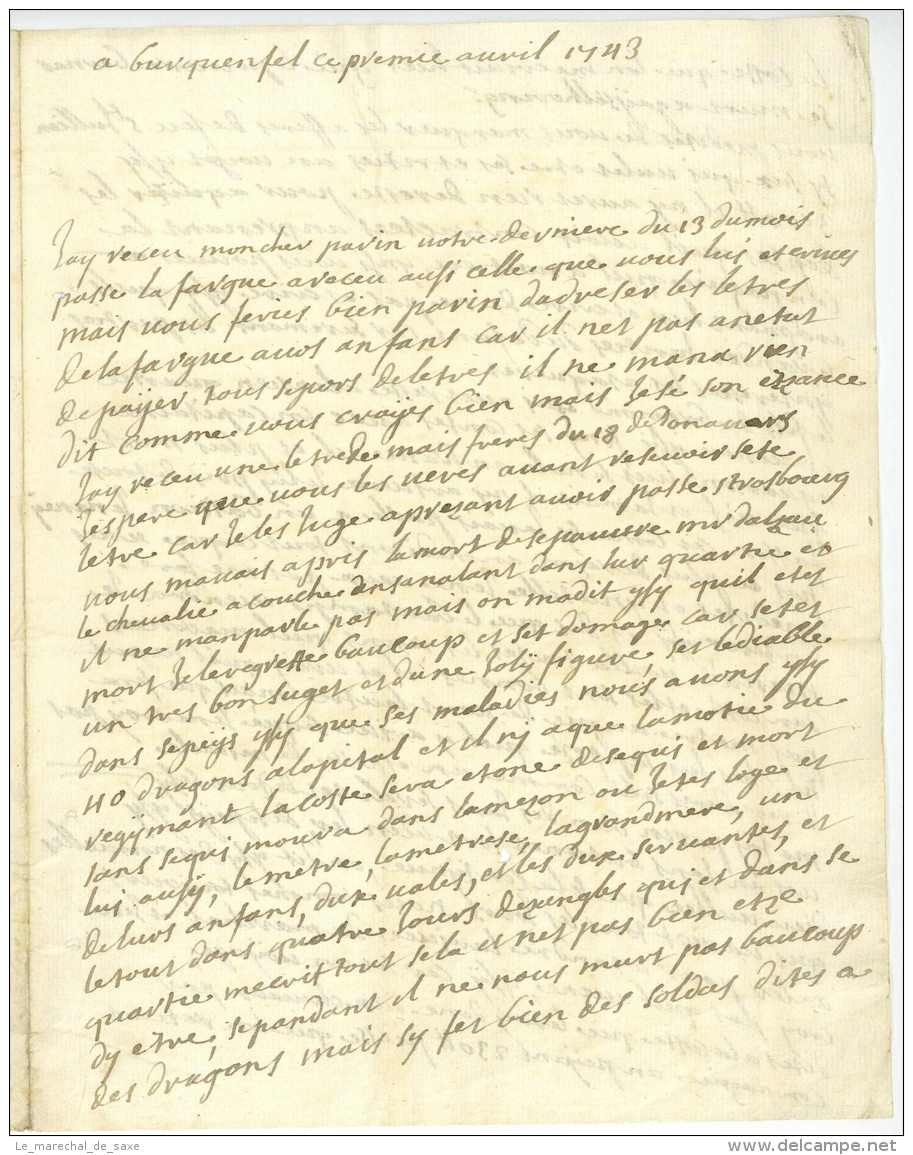 a burquenfel ce premie auril 1743
Jay receu moncher parin uotre derniere du 13 dumois
passe la fargue areceu ausi celle que uous luis etcriues
mais uous feries bien parin dadreser les letres
delafargue auos anfans car il net pas anetat
depaÿer tous sepors deletres il ne mand rien
dit comme uous craÿes bien mais Jesé son
Jay receu une letrede mais freres du 18 de
Jespere que uous les ueres auant reseuoir sete
letre car Jeles Juge apresant auoir passe strasbourg
uous mauais apris lamort desepauure mr dalzau
le cheualie acouche ansanalant dans lur quartie et
il ne manparle pas mais on madit ysy quil etet
mort Jeleregrette baucoup et set domage car setet
un tres bon suget et dune Jolÿ figure, set lediable
dans sepeÿs ysy que ses maladies nous auons ysy
40 dragons alopital et il nÿ aque lamotie du
regÿmant lacoste sera etone desequi et mort
sans sequi moura dans lamezon ou Jetes loge et
luis ausÿ, le metre, lametrese, lagrandmere, un
delurs anfans, dux uales, et les dux seruantes, et
letout dans quatre Jours qui et dans se
quartie mecrit tout sela et net pas bien etze
dy etre, sepandant il ne nous murt pas baucoup
des dragons mais sy fet bien des soldas dites a
Le_marechal_de_saxe
www.delcampe.net